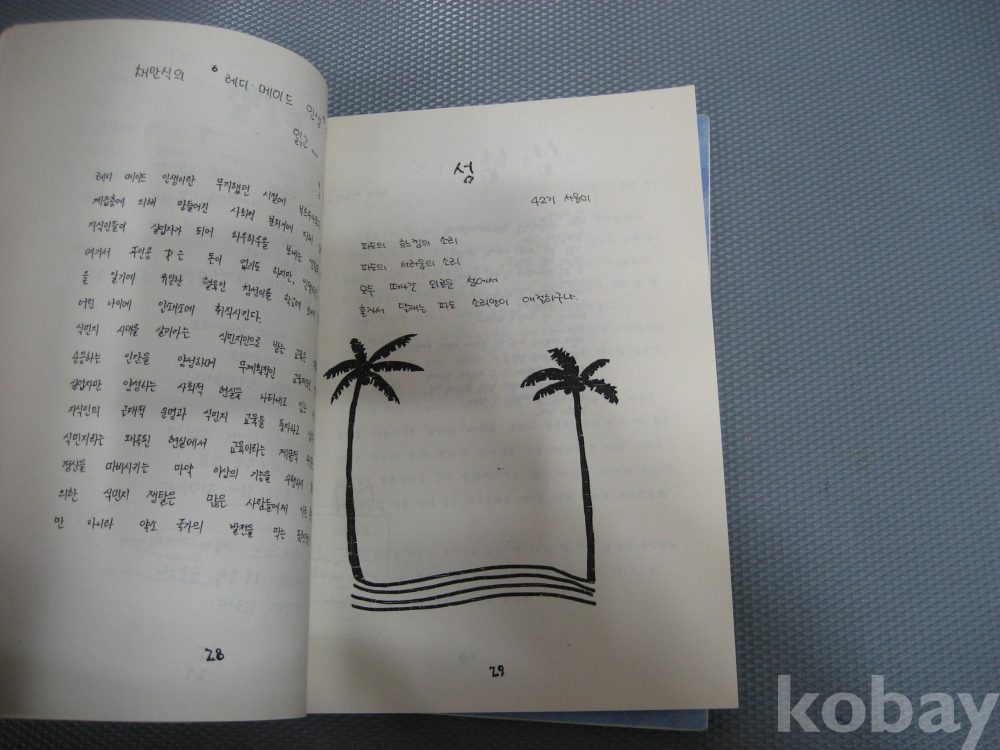 채만식의 '레디·메이드 인생'
읽고...
레디 메이드 인생이란 무지했던 시절에
계층에 의해 만들어진 사회적
지식인들이 실업자가 되어 하루하루를 보내는
여기서 주인공 P는 돈이 없기도 하지만,
을 일기에 유일한 혈육인 창선이를 학교에
어린 나이에 인쇄소에 취직시킨다.
식민지 시대를 살아가는 식민지인으로 받는 교육은
순응하는 인간을 양성하며 무계획적인
실업자만 양성하는 사회적 현실을 나타내고 있는
지식인의 근대적 운명과 식민지 교육을 풍자하고
식민지라는 왜곡된 현실에서 교육이라는
정신을 마비시키는 마약 이상의 기능을
의한 식민지 쟁탈은 많은 사람들에게
만 아니라 약소 국가의 발전을 막는
28
섬
42기 서용미
파도의 흐느낌의 소리
파도의 서러움의 소리
모두 떠나간 외로운 섬에서
혼자서 달래는 파도 소리만이 애절하구나.
29
kobay